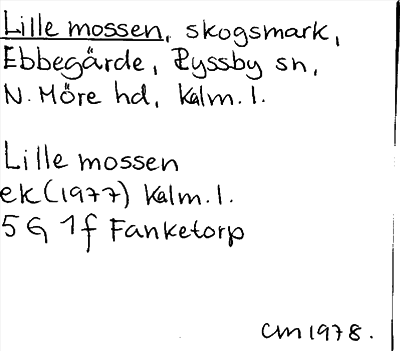 Lille mossen, skogsmark,
Ebbegärde, Ryssby sn,
N. Möre hd, Kalm. l.
Lille mossen
ek (1977) Kalm. l.
5 G 1f Fanketorp
CM 1978.